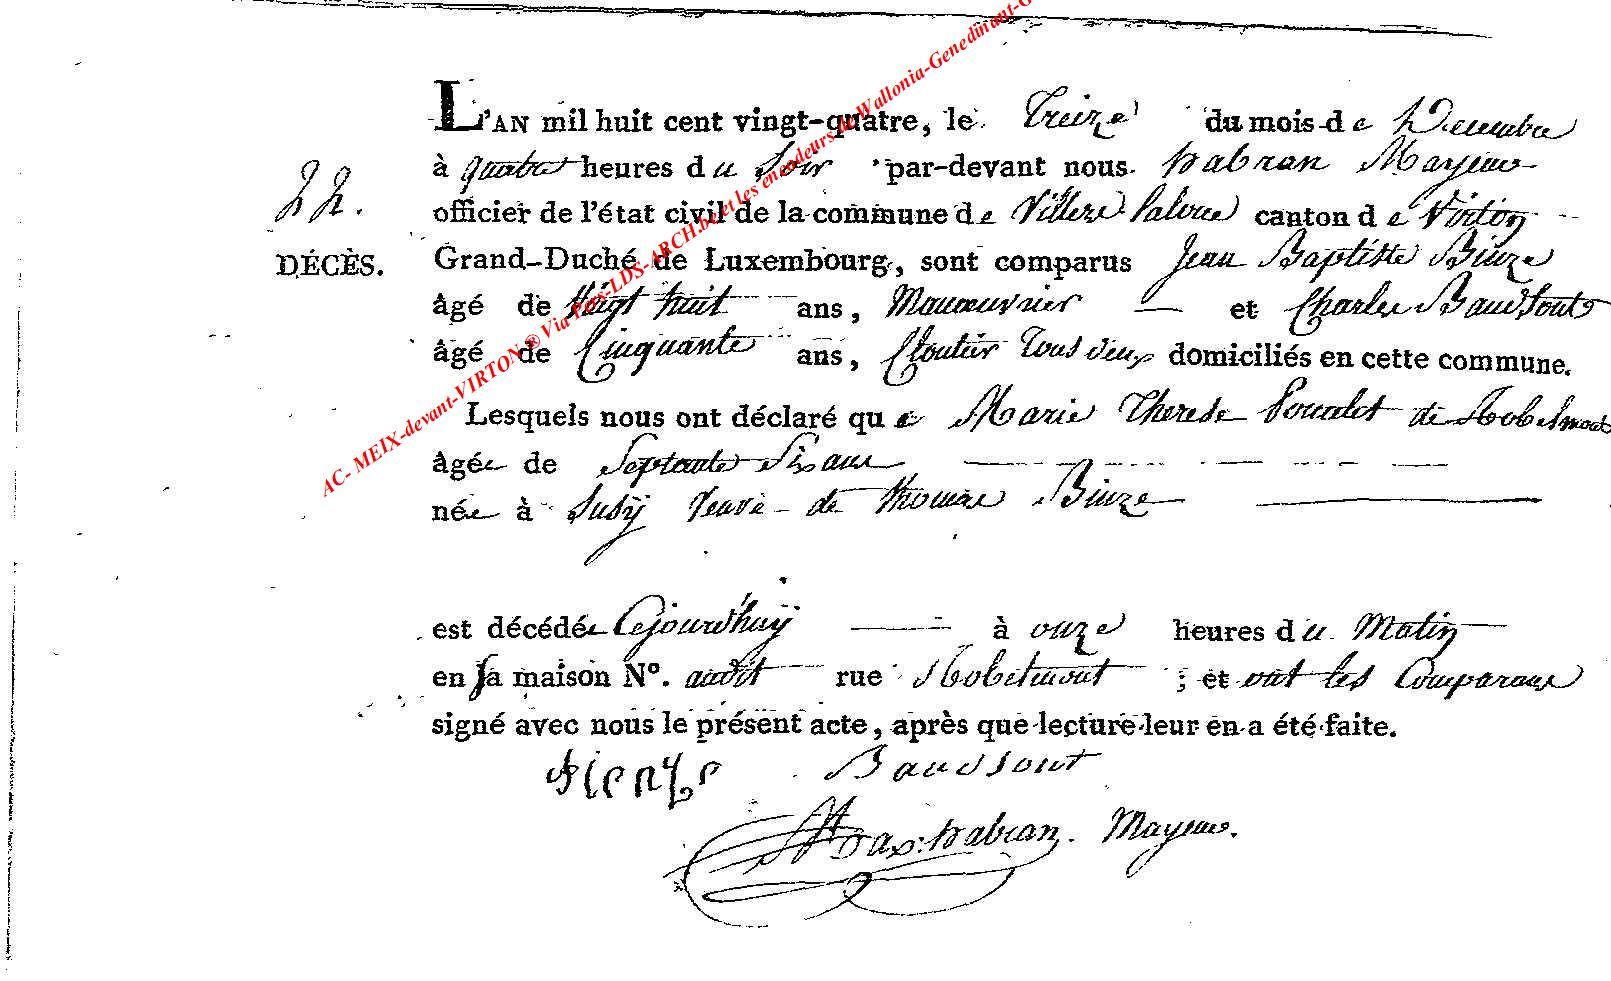 L'AN mil huit cent vingt-quatre, le Treize du mois de Decembre
à quatre heures du Soir par-devant nous habran Mayeur
22.
officier de l'état civil de la commune de Villers Laloue canton de Virton
DÉCÈS.
Grand-Duché de Luxembourg, sont comparus Jean Baptiste Binze
âgé de Vingt huit ans, Manœuvrier et Charles Baudsont
âgé de Cinquante ans, Cloutier Tous deux domiciliés en cette commune.
Lesquels nous ont déclaré que Marie Therese de Robelmont
âgée de Septante Six ans
née à Susÿ Veuve de Thomas Binze
est décédée Cejourd'huÿ à onze heures du Matin
en sa maison N°. audit rue Robelmont ; et ont les Comparans
signé avec nous le présent acte, après que lecture leur en a été faite.
Baudsont
habran. Mayeur.
AC- MEIX-devant-VIRTON ® Via Pas-LDS-ARCH.be et les encodeurs de Wallonia-Genedinant-G